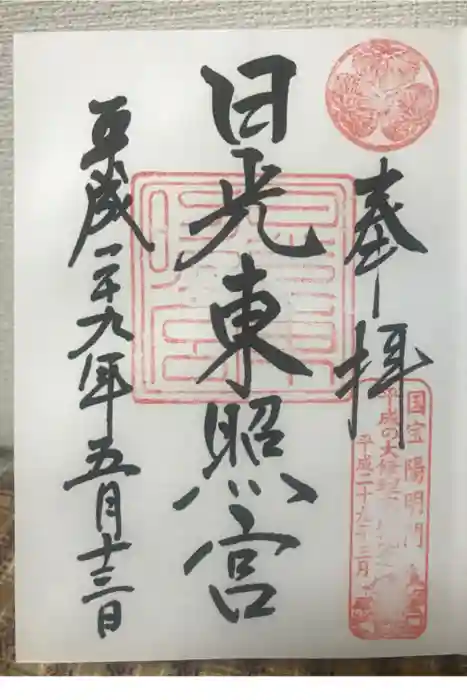 奉拝
日光東照宮
平成二十九年五月十三日
国宝 陽明門
平成の大修理
平成二十九年三月